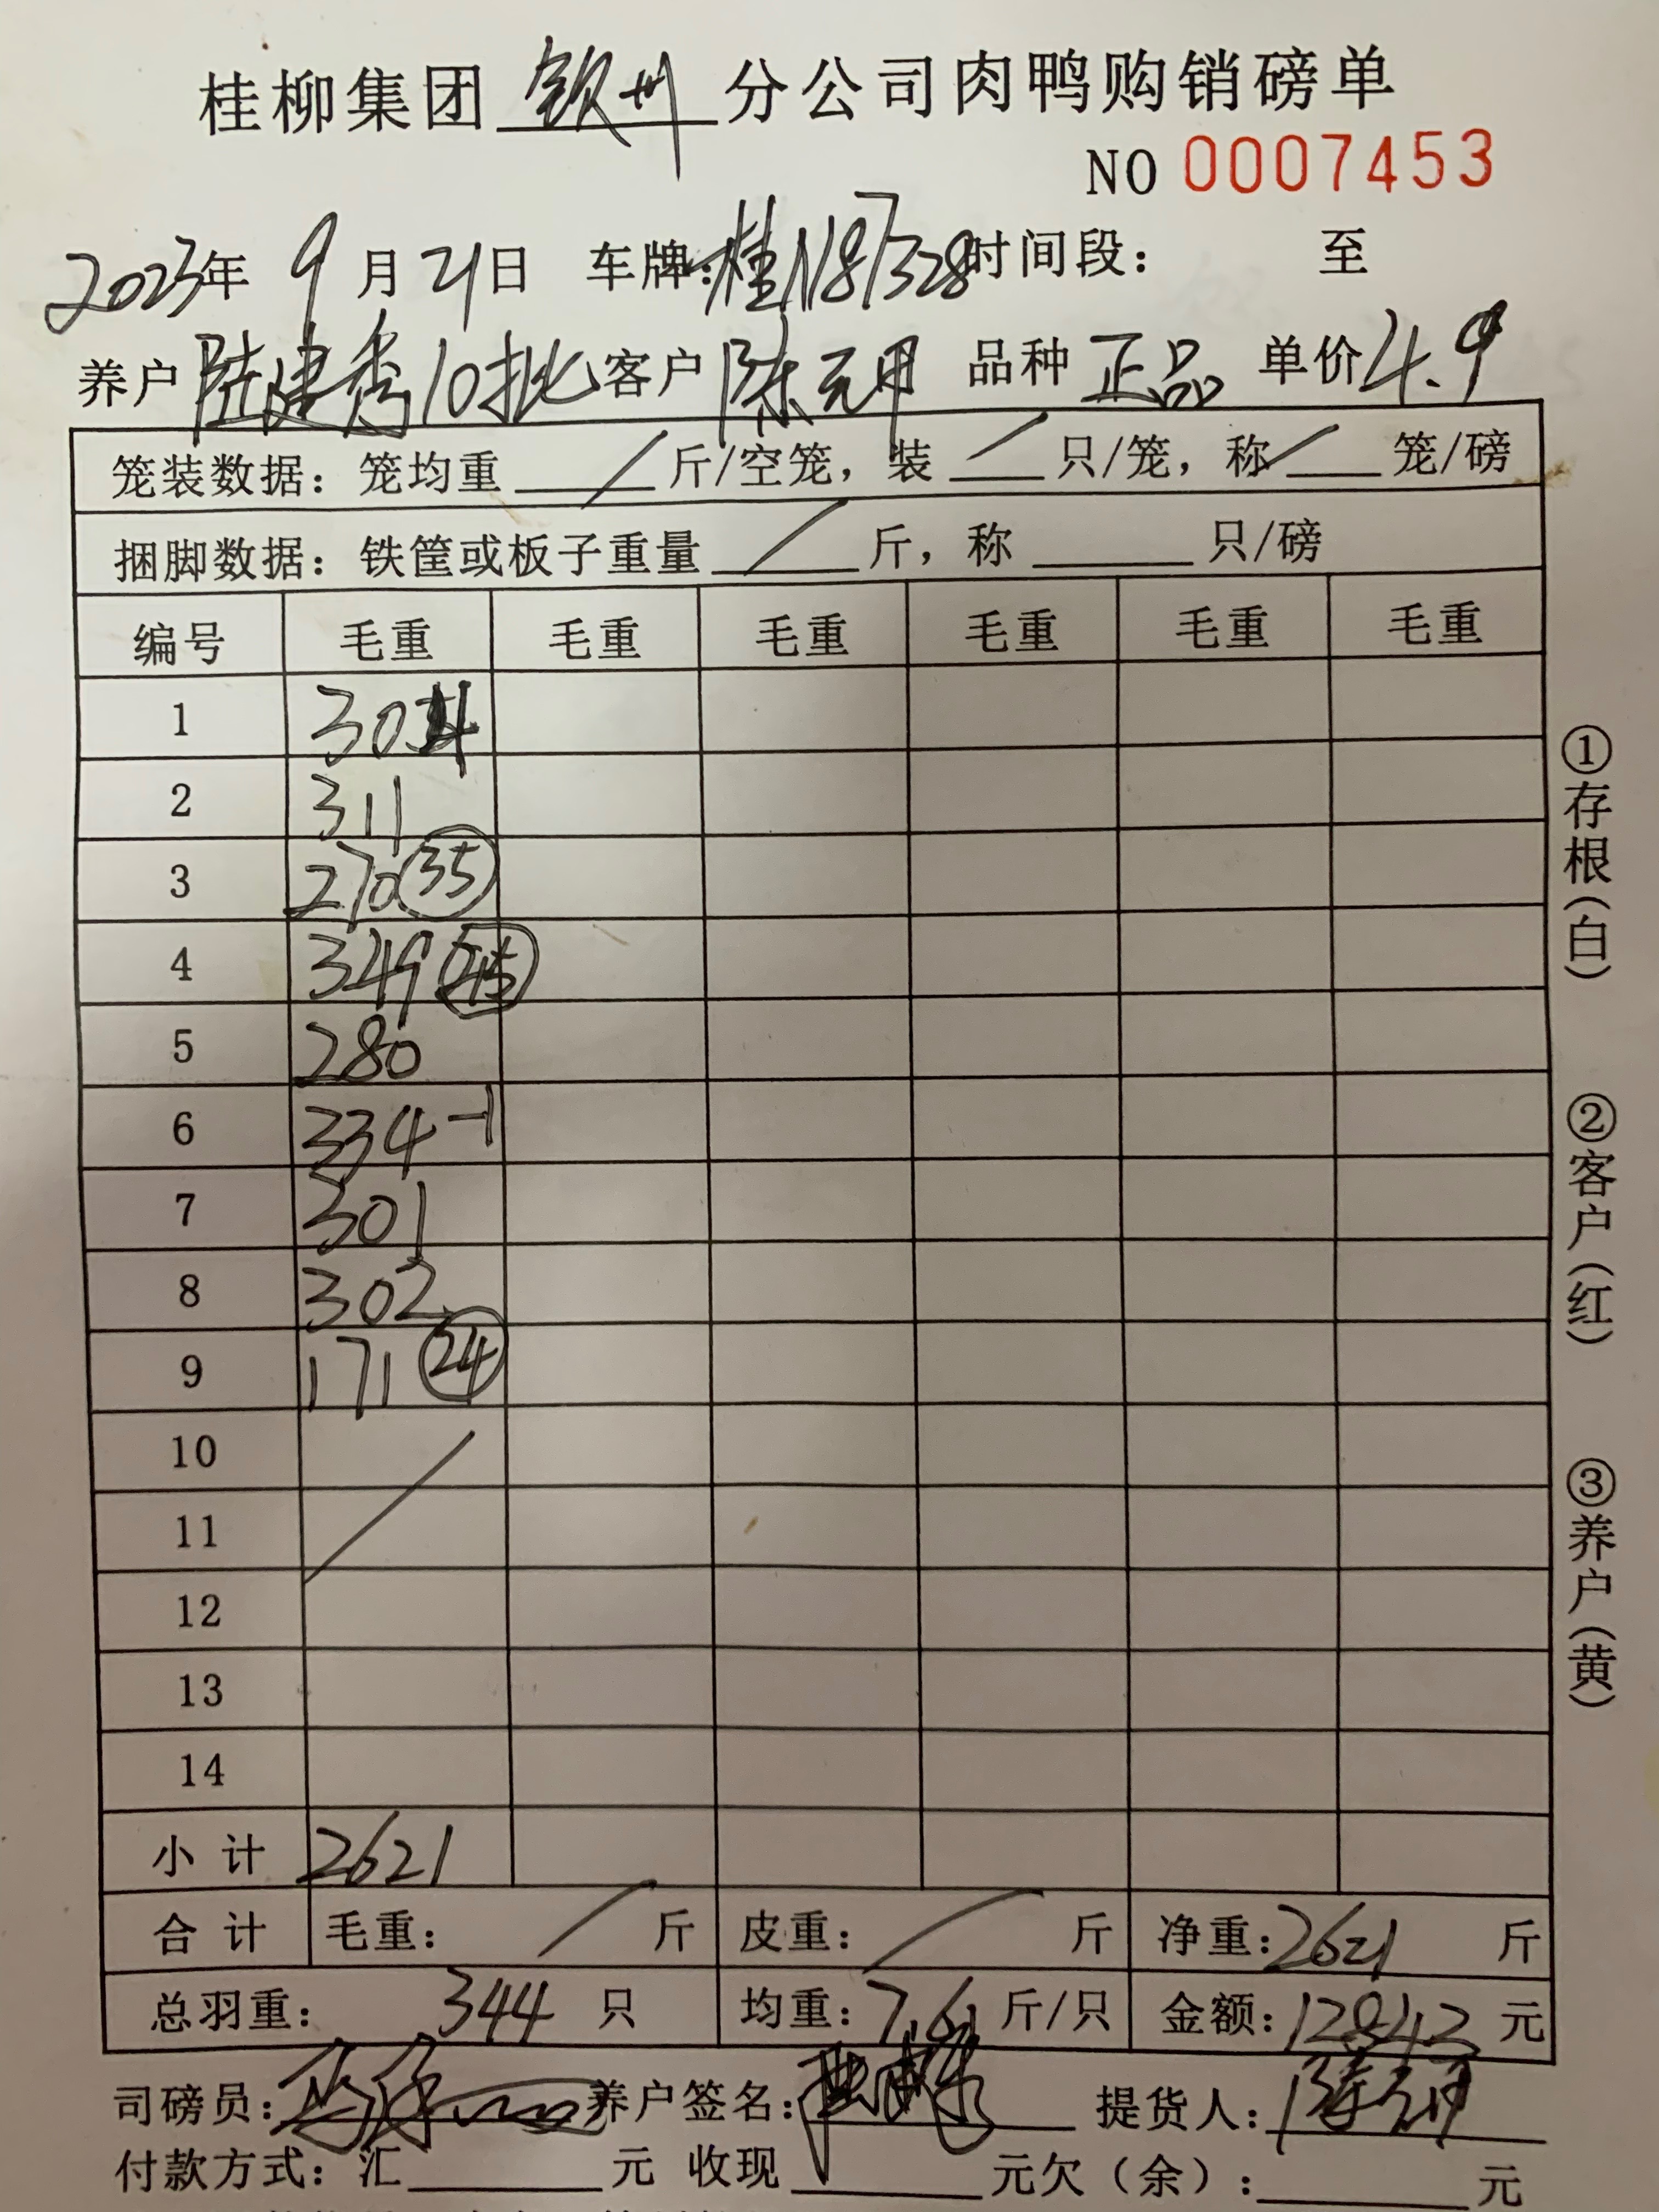 桂柳集团钦州分公司肉鸭购销磅单
NO 0007453
2023年 9月21日 车牌:桂N87328时间段: 至
养户陆建秀10批客户陈元月 品种正品 单价4.9
笼装数据:笼均重 / 斤/空笼,装 / 只/笼,称 / 笼/磅
捆脚数据:铁筐或板子重量 / 斤,称 只/磅
编号 毛重 毛重 毛重 毛重 毛重 毛重
1 304
2 311
3 270 35
4 349 45
5 280
6 334 -1
7 301
8 302
9 171 24
10
11
12
13
14
小计 2621
合计 毛重: / 斤 皮重: / 斤 净重:2621 斤
总羽重: 344 只 均重:7.6 斤/只 金额:12842 元
司磅员: 养户签名: 提货人:
付款方式:汇 元 收现 元欠(余): 元
①存根(白)
②客户(红)
③养户(黄)